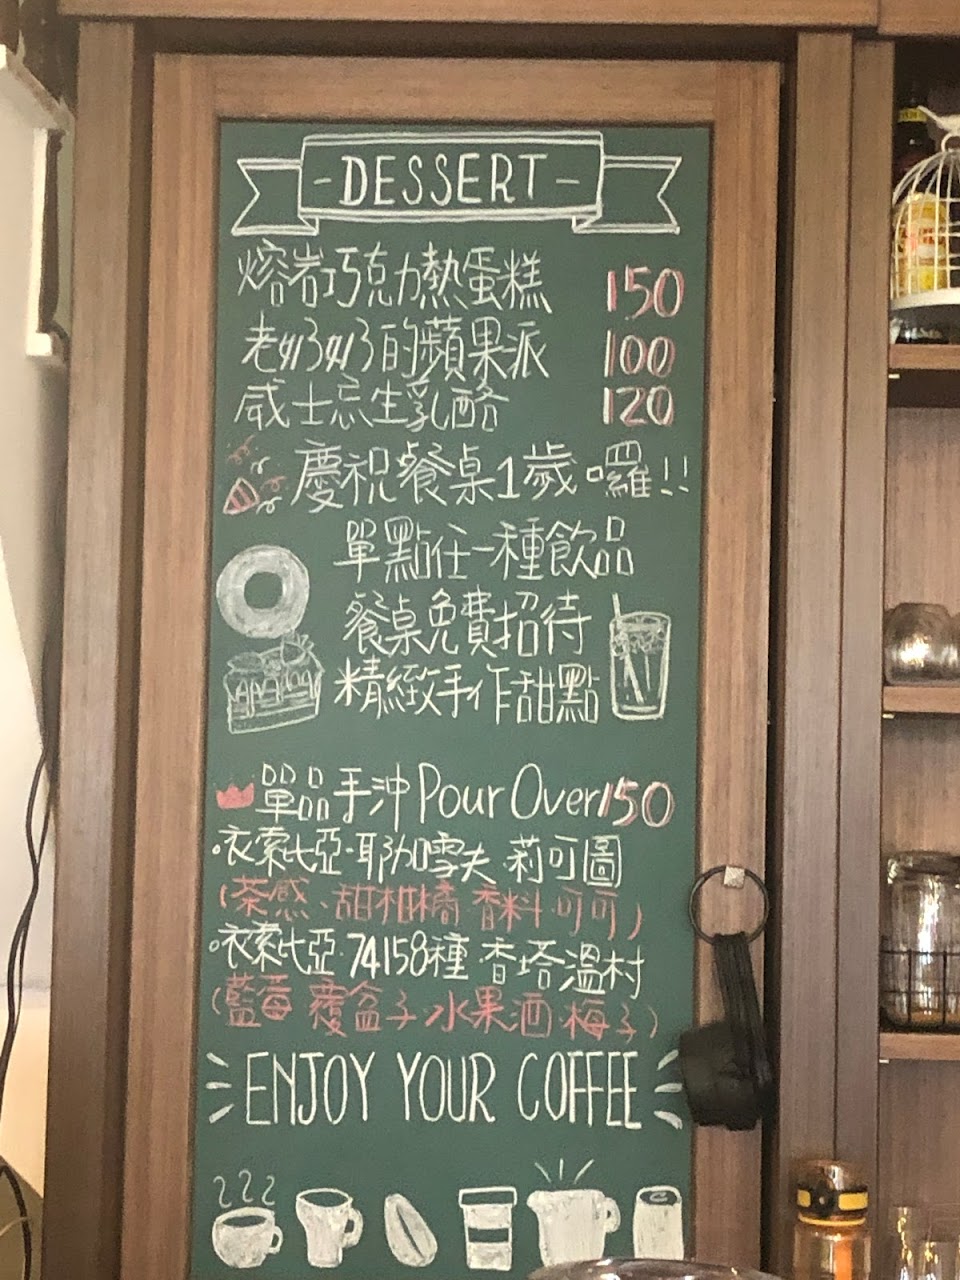 -DESSERT-
熔岩巧克力熱蛋糕 150
老奶奶的蘋果派 100
威士忌生乳酪 120
慶祝餐桌1歲囉!!
單點任一種飲品
餐桌免費招待
精緻手作甜點
單品手沖 Pour Over 150
·衣索比亞·耶加雪夫 莉可圖
(茶感、甜柑橘 香料 可可)
·衣索比亞·74158種 香塔溫村
(藍莓 覆盆子 水果酒 梅子)
ENJOY YOUR COFFEE